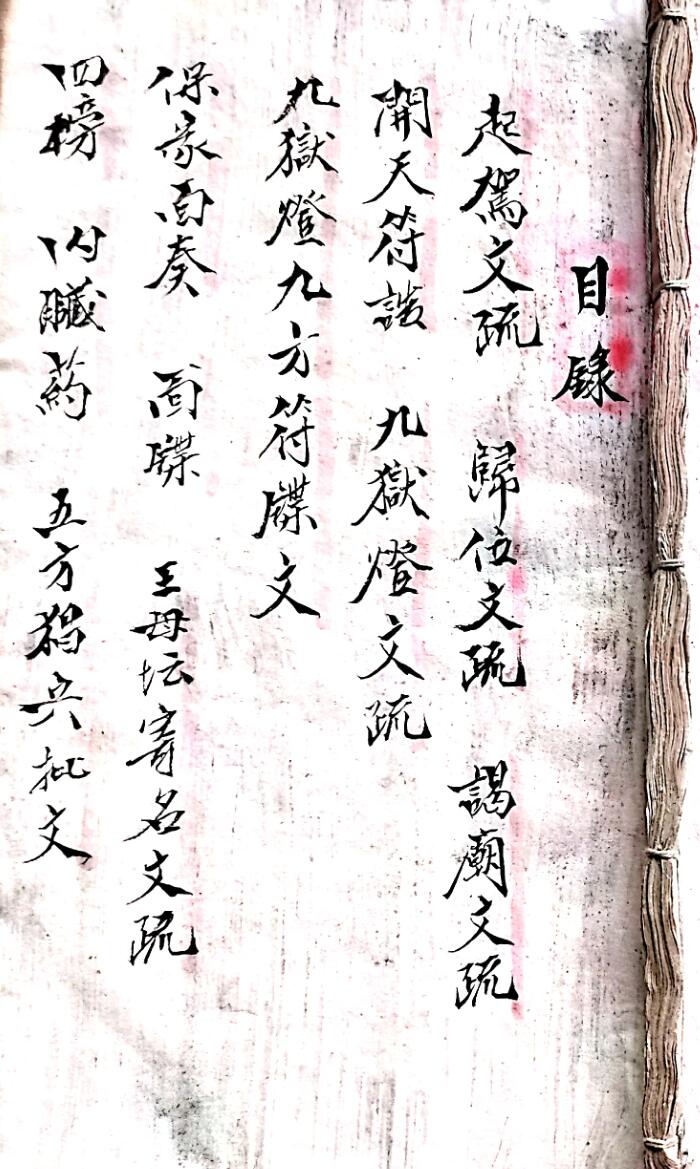 目錄
起駕文疏 歸位文疏 謁廟文疏
開天符 九獄燈文疏
九獄燈九方符牒文
保家面奏 牒 王母坛寄名文疏
四榜 內臟葯 五方猖兵批文